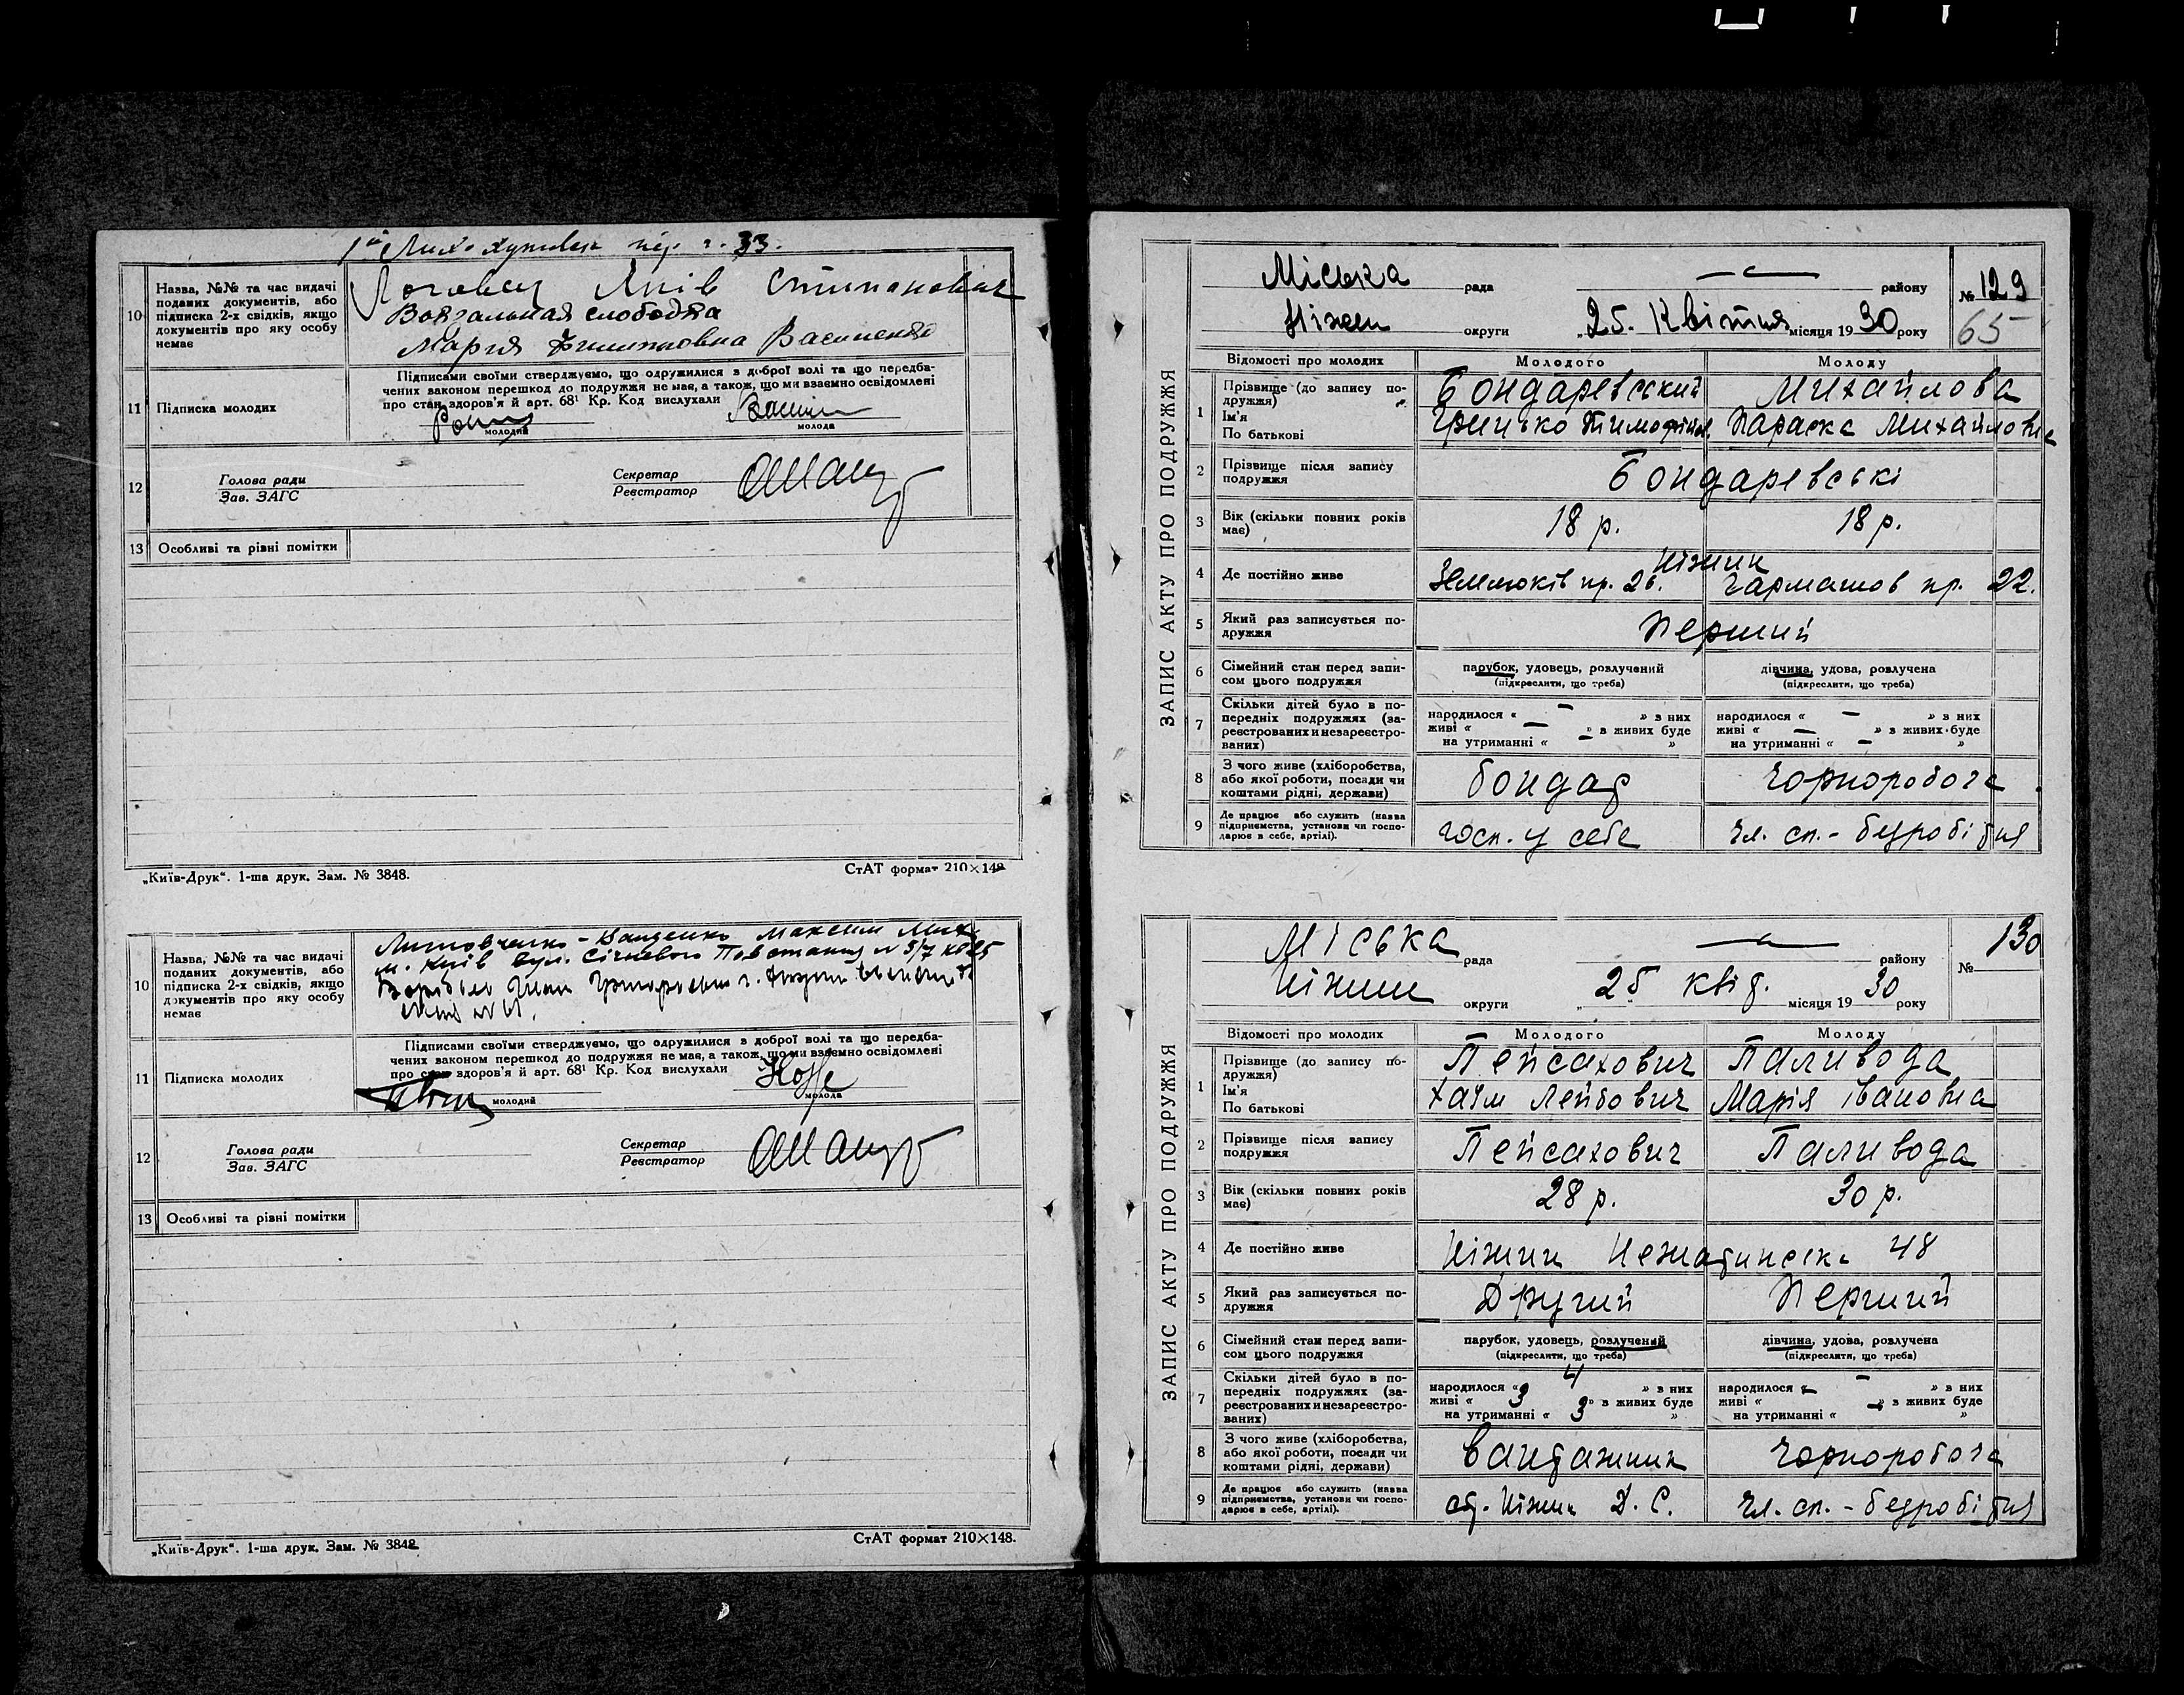 33.
10 Назва, №№ та час видачі
поданих документів, або
підписка 2-х свідків, якщо
документів про яку особу
немає
Яків Степанович
Вокзальная слободка
Мария Филиповна Василенко
Підписами своїми стверджуємо, що одружилися з доброї волі та що передба-
чених законом перешкод до подружжя не має, а також, що ми взаємно освідомлені
про стан здоров'я й арт. 68¹ Кр. Код вислухали
11 Підписка молодих
молодий молода
12 Голова ради
Зав. ЗАГС
Секретар
Реєстратор
13 Особливі та різні помітки
„Київ-Друк“. 1-ша друк. Зам. № 3848. СтАТ формат 210×148
10 Назва, №№ та час видачі
поданих документів, або
підписка 2-х свідків, якщо
документів про яку особу
немає
Максим Мих.
м. Київ вул. Січневого Повстання № 5/7
Григорович
Підписами своїми стверджуємо, що одружилися з доброї волі та що передба-
чених законом перешкод до подружжя не має, а також, що ми взаємно освідомлені
про стан здоров'я й арт. 68¹ Кр. Код вислухали
11 Підписка молодих
молодий молода
12 Голова ради
Зав. ЗАГС
Секретар
Реєстратор
13 Особливі та різні помітки
„Київ-Друк“. 1-ша друк. Зам. № 3848 СтАТ формат 210×148.
ЗАПИС АКТУ ПРО ПОДРУЖЖЯ
Міська рада — району № 129
Ніжен округи „25. Квітня місяця 1930 року 65
Відомості про молодих Молодого Молоду
1 Прізвище (до запису по-
дружжя) Бондаревський Михайлова
Ім'я
По батькові Грицько Тимофійов. Параска Михайловна
2 Прізвище після запису
подружжя Бондаревські
3 Вік (скільки повних років
має) 18 р. 18 р.
4 Де постійно живе Ніжин
пр. 26. Гармашов пр. 22.
5 Який раз записується по-
дружжя Перший
6 Сімейний стан перед запи-
сом цього подружжя
парубок, удовець, розлучений дівчина, удова, розлучена
(підкреслити, що треба) (підкреслити, що треба)
7 Скільки дітей було в по-
передніх подружжях (за-
реєстрованих и незареєстро-
ваних)
народилося « — » з них народилося « — » з них
живі « — » з живих буде живі « — » з живих буде
на утриманні « — » на утриманні « — »
8 З чого живе (хліборобства,
або якої роботи, посади чи
коштами рідні, держави) бондар Чорноробоча
9 Де працює або служить (назва
підприємства, установи чи госпо-
дарює в себе, артілі). госп. у себе чл. сп. - безробітня
ЗАПИС АКТУ ПРО ПОДРУЖЖЯ
Міська рада — району № 130
Ніжин округи „25 квід. місяця 1930 року
Відомості про молодих Молодого Молоду
1 Прізвище (до запису по-
дружжя) Пейсахович Паливода
Ім'я
По батькові Хаїм Лейбович Марія Івановна
2 Прізвище після запису
подружжя Пейсахович Паливода
3 Вік (скільки повних років
має) 28 р. 30 р.
4 Де постійно живе Ніжин 48
5 Який раз записується по-
дружжя Другий Перший
6 Сімейний стан перед запи-
сом цього подружжя
парубок, удовець, розлучений дівчина, удова, розлучена
(підкреслити, що треба) (підкреслити, що треба)
7 Скільки дітей було в по-
передніх подружжях (за-
реєстрованих и незареєстро-
ваних)
народилося « 4 » з них народилося « — » з них
живі « 3 » з живих буде живі « — » з живих буде
на утриманні « 3 » на утриманні « »
8 З чого живе (хліборобства,
або якої роботи, посади чи
коштами рідні, держави) вандажник Чорноробоча
9 Де працює або служить (назва
підприємства, установи чи госпо-
дарює в себе, артілі). ст. Ніжин Д. С. чл. сп. - безробітня